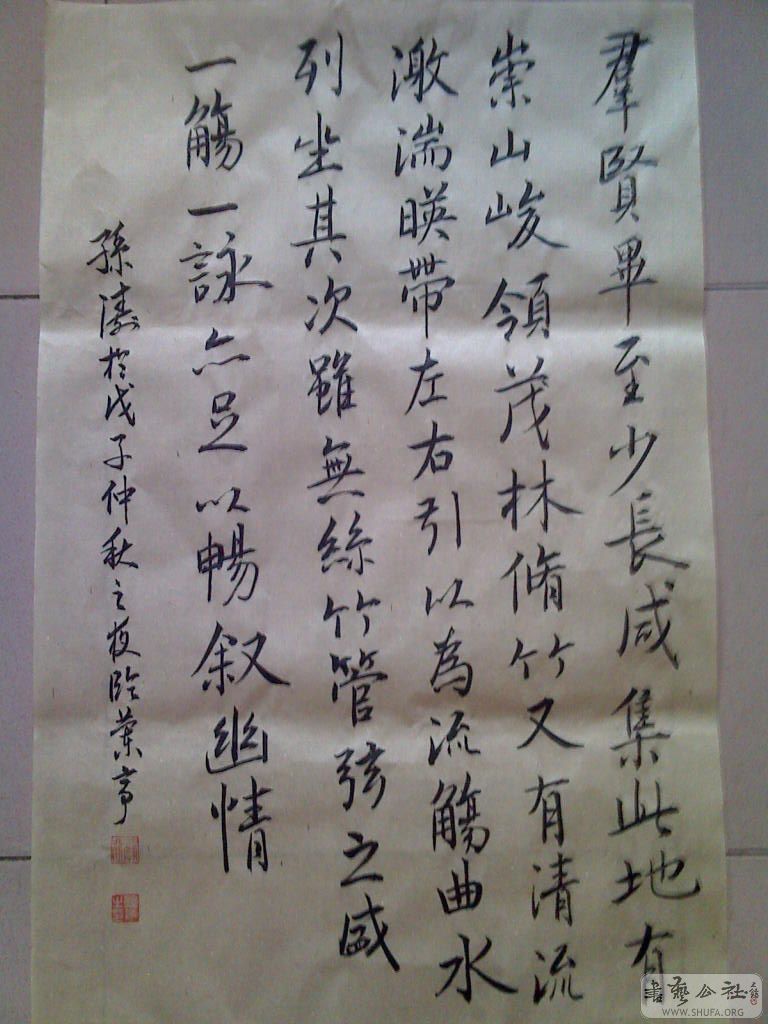 羣賢畢至少長咸集此地有
崇山峻領茂林脩竹又有清流
激湍暎帶左右引以為流觴曲水
列坐其次雖無絲竹管弦之盛
一觴一詠亦足以暢叙幽情
孫濤於戊子仲秋之夜臨蘭亭
書藝公社
WWW.SHUFA.ORG